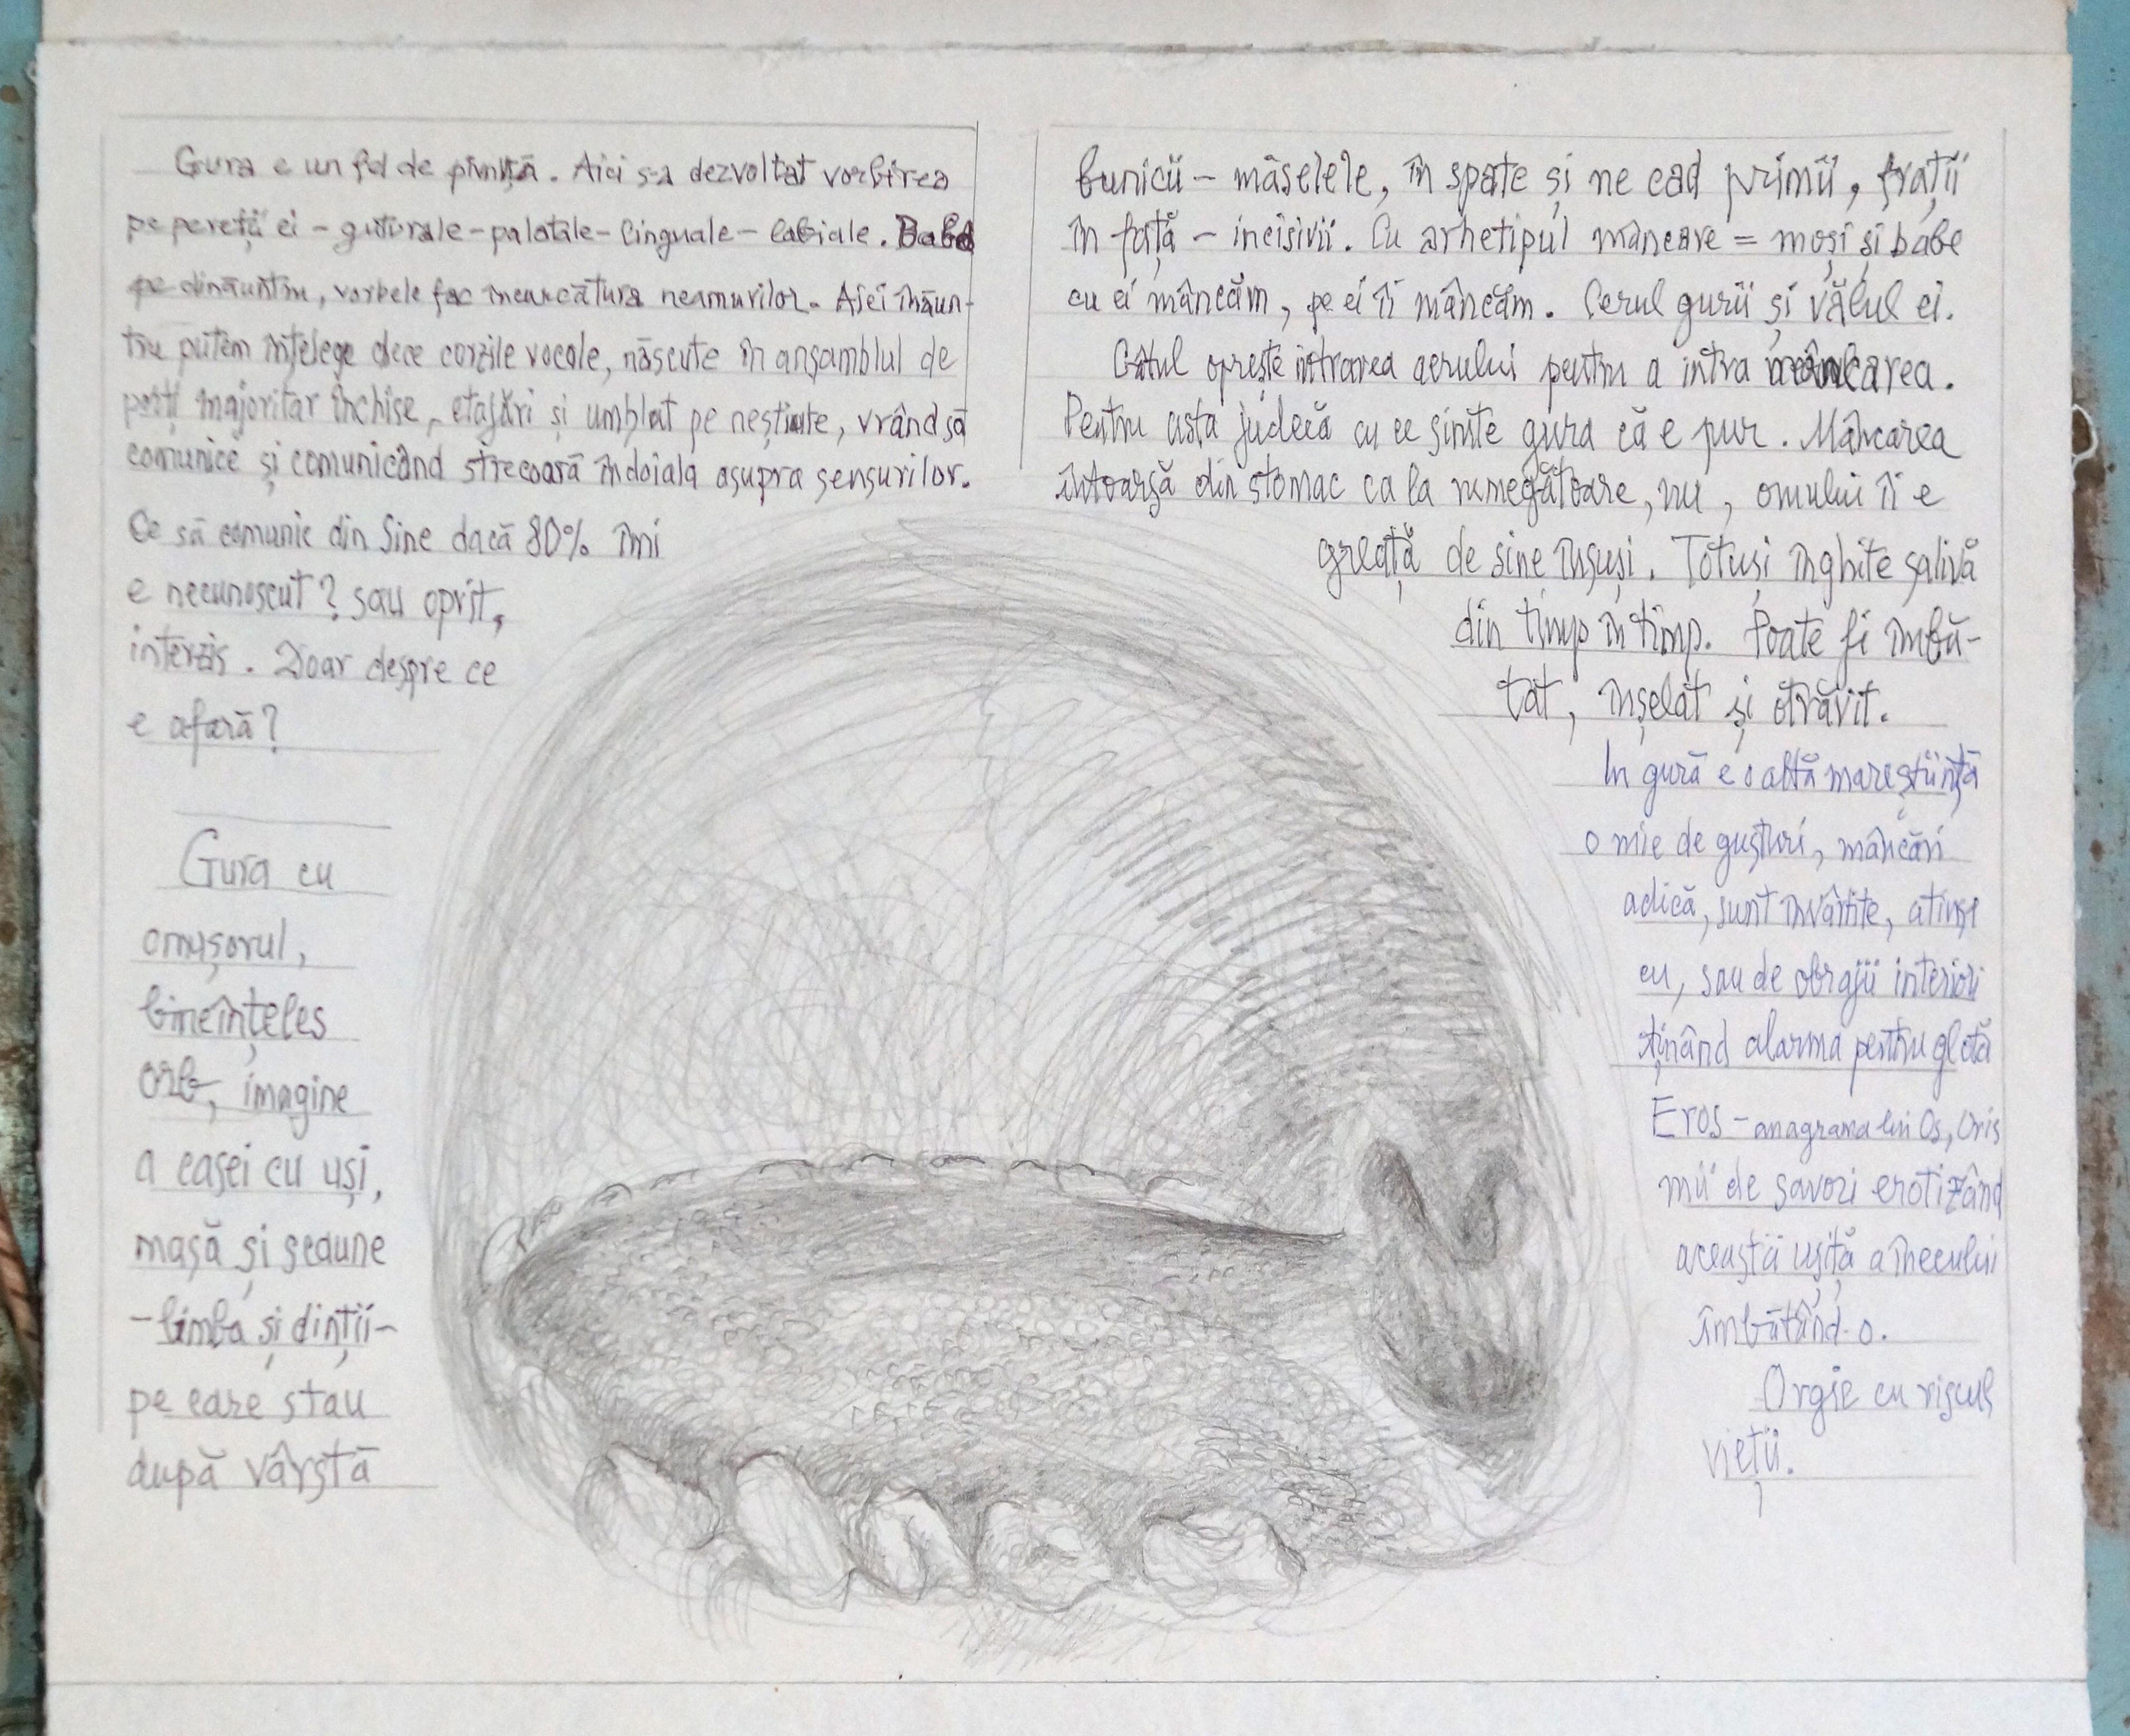 Gura e un fel de pivniță. Aici s-a dezvoltat vorbirea
pe pereții ei – guturale – palatale – linguale – labiale. Babel
pe dinăuntru, vorbele fac încărcătura neamurilor. Aici înăun-
tru putem înțelege dece corzile vocale, născute în ansamblul de
porți majoritar închise, etajări și umblat pe neștiute, vrând să
comunice și comunicând strecoară îndoiala asupra sensurilor.
Ce să comunic din Sine dacă 80% îmi
e necunoscut? sau oprit,
interzis. Doar despre ce
e afară?
Gura cu
omușorul,
bineînțeles
orb, imagine
a casei cu uși,
masă și scaune
– limba și dinții –
pe care stau
după vârstă
bunicii – măselele, în spate și ne cad primii, frații
în față – incisivii. Cu arhetipul mâncare = moși și babe
cu ei mâncăm, pe ei îi mâncăm. Cerul gurii și vălul ei.
Gâtul oprește intrarea aerului pentru a intra mâncarea.
Pentru asta judecă cu ce simte gura că e pur. Mâncarea
întoarsă din stomac ca la rumegătoare, nu, omului îi e
greață de sine însuși. Totuși înghite salivă
din timp în timp. Poate fi îmbă-
tat, înșelat și otrăvit.
In gură e o altă mare știință
o mie de gusturi, mâncări
adică, sunt învârtite, atinse
cu, sau de obrajii interiori
ținând alarma pentru glotă
Eros – anagrama lui Os, Oris
mii de savori erotizând
această ușiță a înecului
îmbătând-o.
Orgie cu riscul
vieții.